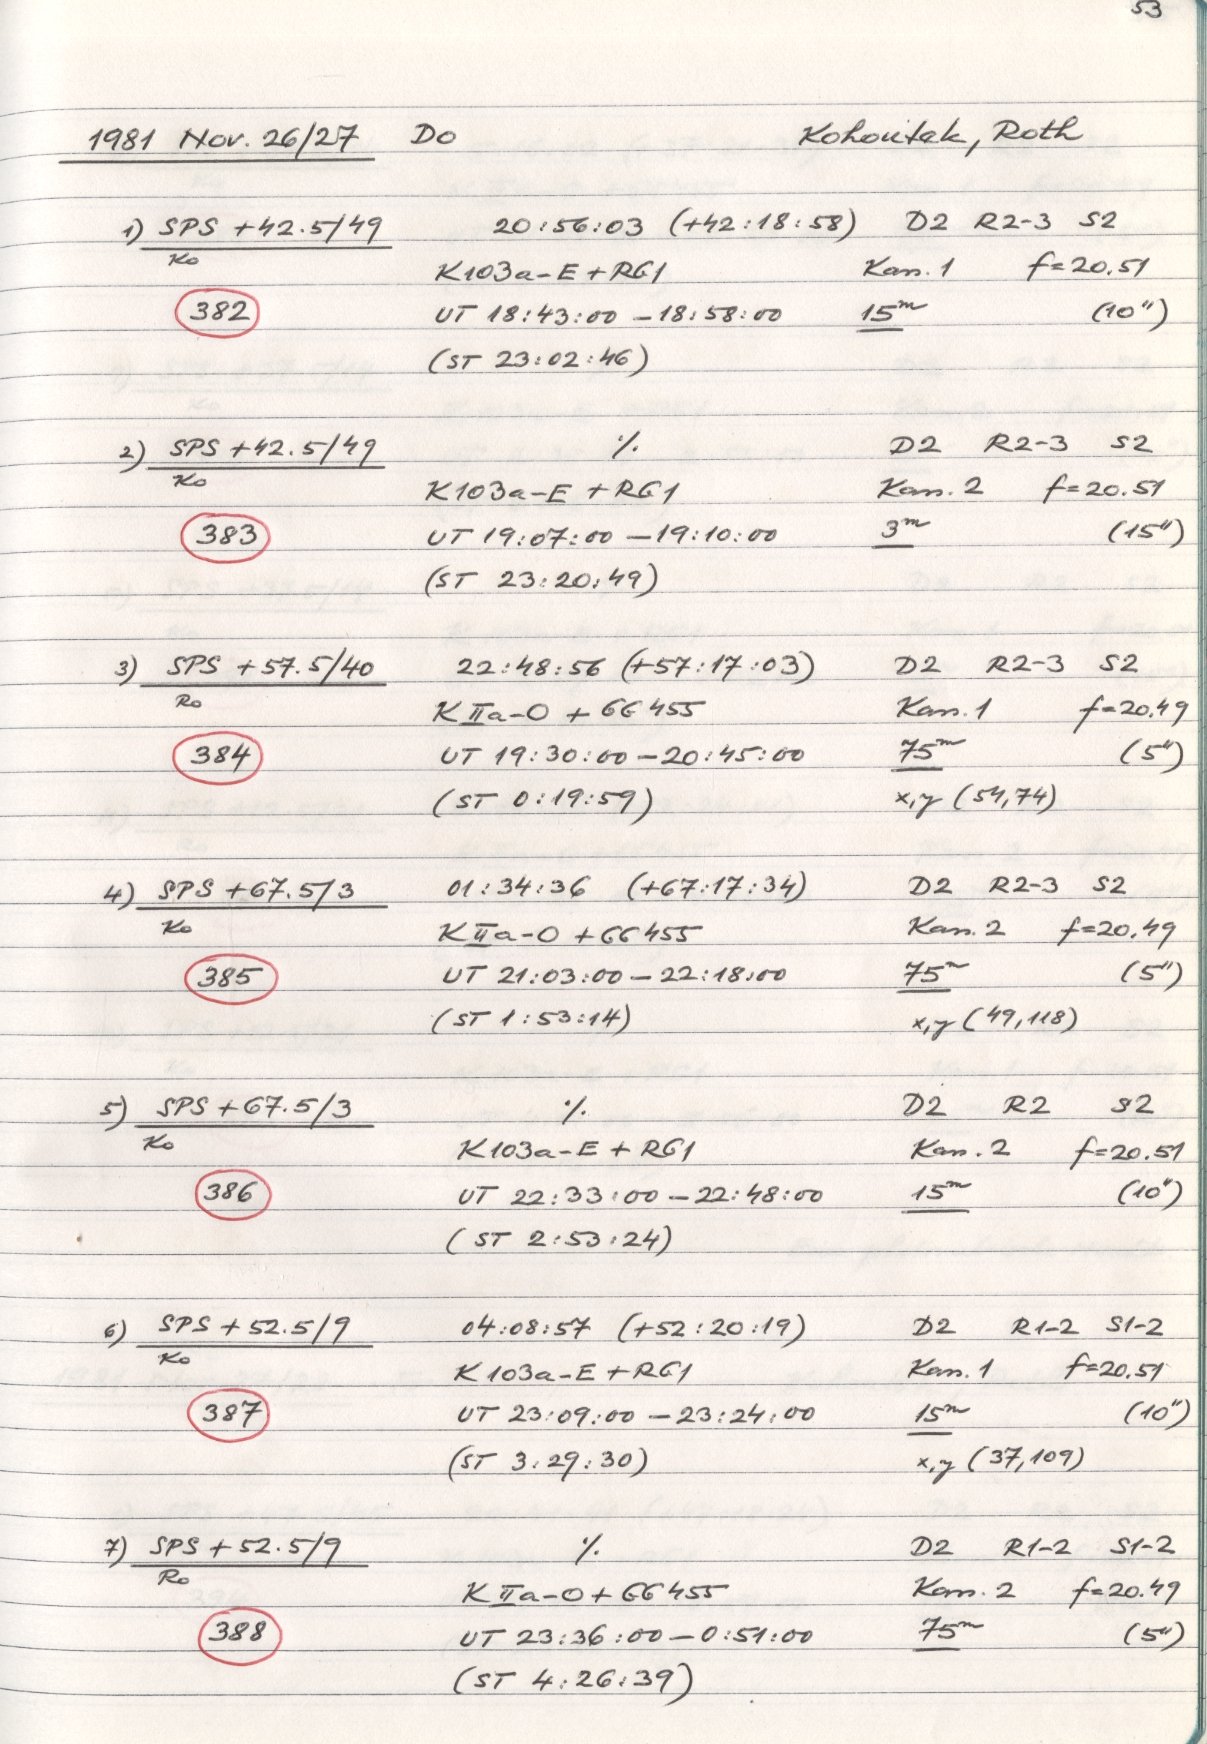 53
1981 Nov. 26/27 Do Kohoutek, Roth
1) SPS +42.5/49 20:56:03 (+42:18:58) D2 R2-3 S2
Ko K103a-E+RG1 Kan.1 f=20.51
382 UT 18:43:00 -18:58:00 15m (10")
(ST 23:02:46)
2) SPS +42.5/49 ·/. D2 R2-3 S2
Ko K103a-E +RG1 Kan.2 f=20.51
383 UT 19:07:00 -19:10:00 3m (15")
(ST 23:20:49)
3) SPS +57.5/40 22:48:56 (+57:17:03) D2 R2-3 S2
Ro K IIa-O + GG455 Kan.1 f=20.49
384 UT 19:30:00 -20:45:00 75m (5")
(ST 0:19:59) x,y (54,74)
4) SPS +67.5/3 01:34:36 (+67:17:34) D2 R2-3 S2
Ko K IIa-O +GG455 Kan.2 f=20.49
385 UT 21:03:00 - 22:18:00 75m (5")
(ST 1:53:14) x,y (49,118)
5) SPS +67.5/3 ·/. D2 R2 S2
Ko K103a-E + RG1 Kan.2 f=20.51
386 UT 22:33:00 -22:48:00 15m (10")
(ST 2:53:24)
6) SPS +52.5/9 04:08:57 (+52:20:19) D2 R1-2 S1-2
Ko K103a-E+RG1 Kan.1 f=20.51
387 UT 23:09:00 -23:24:00 15m (10")
(ST 3:29:30) x,y (37,109)
7) SPS +52.5/9 ·/. D2 R1-2 S1-2
Ro K IIa-O+GG455 Kan.2 f=20.49
388 UT 23:36:00 -0:51:00 75m (5")
(ST 4:26:39)